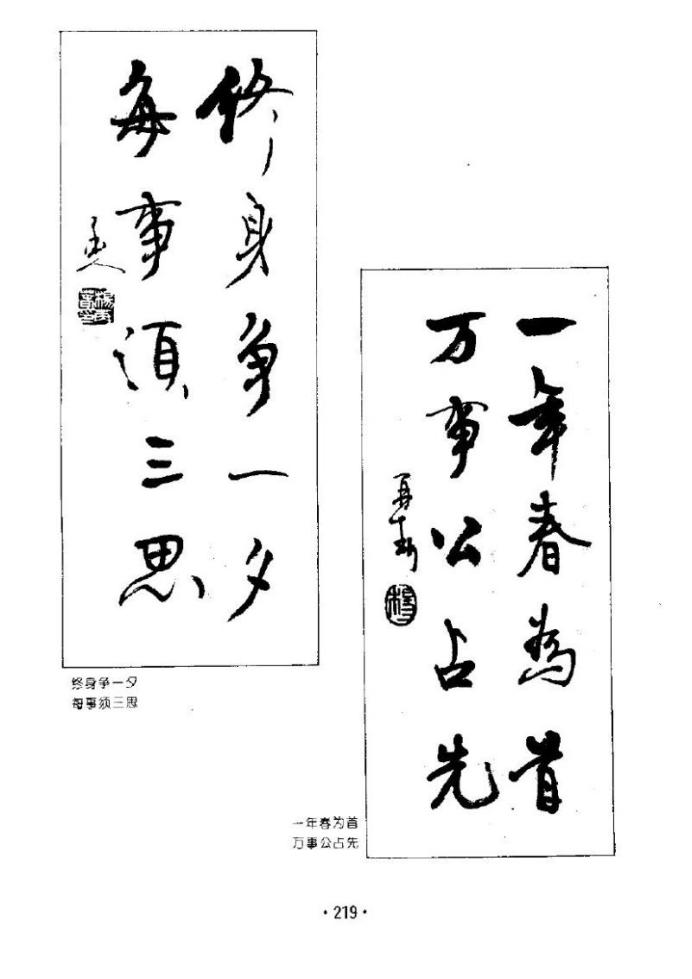 修身争一夕
每事須三思
终身争一夕
每事须三思
一年春為首
万事公占先
一年春为首
万事公占先
·219·